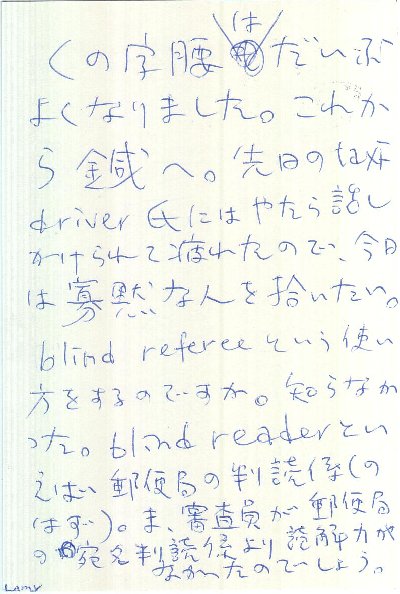 くの字腰はだいぶ
よくなりました。これか
ら鍼へ。先日のtaxi
driver氏にはやたら話し
かけられて疲れたので、今日
は寡黙な人を拾いたい。
blind refereeという使い
方をするのですか。知らなか
った。blind readerとい
えば郵便局の判読係(の
はず)。ま、審査員が郵便局
の宛名判読係より読解力が
なかったのでしょう。
LAMY